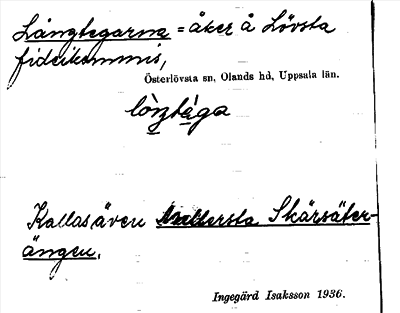 Långtegarna = åker å Lövsta
fideikommis,
Österlövsta sn, Olands hd, Uppsala län.
Kallas även Mellersta Skärsäter-
ängen.
Ingegärd Isaksson 1936.